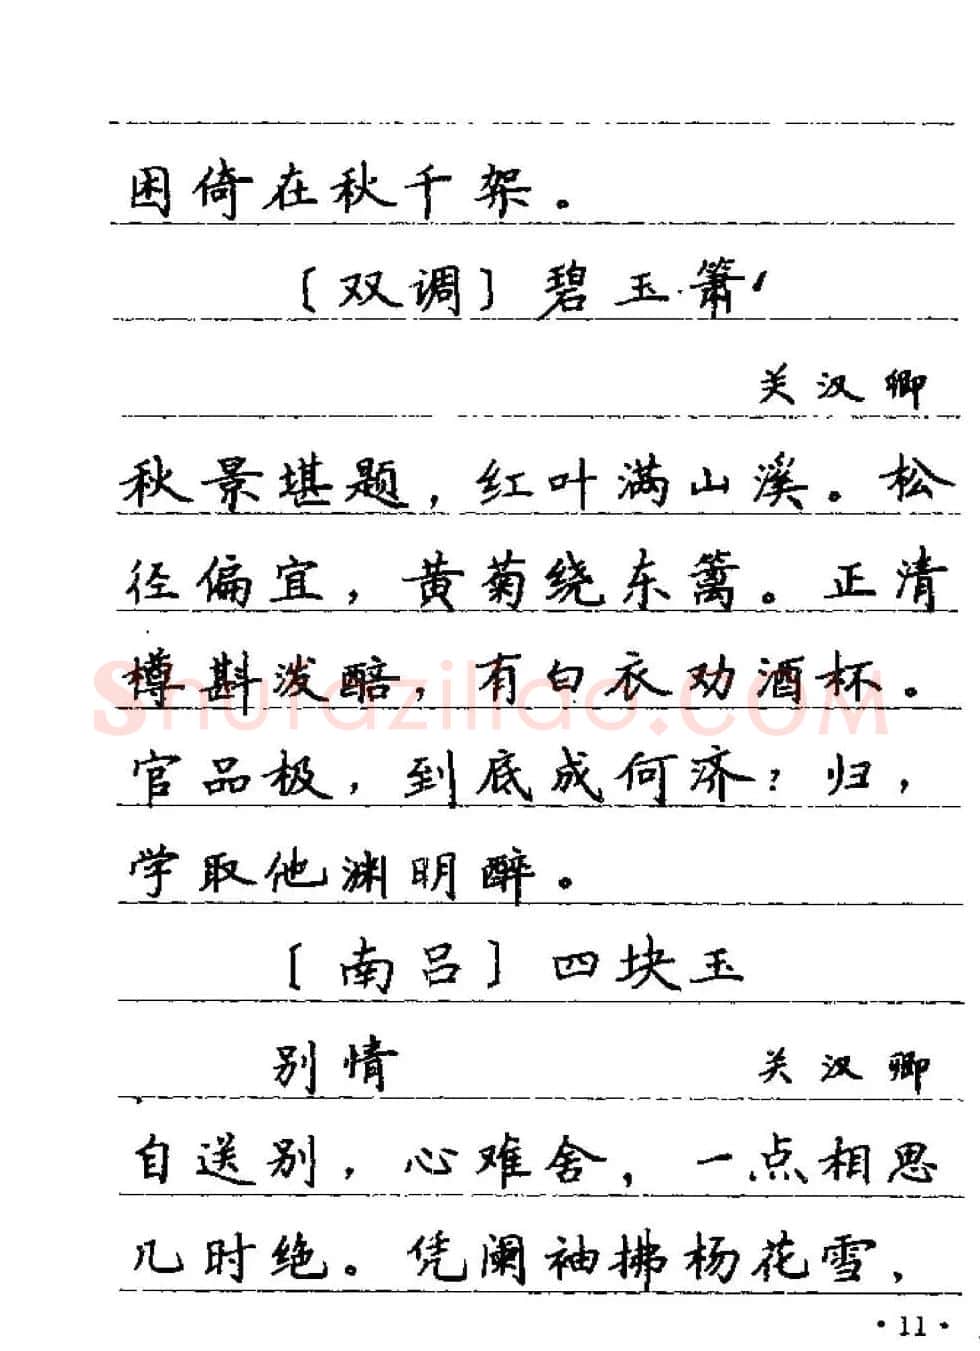 困倚在秋千架。
〔双调〕碧玉箫
关汉卿
秋景堪题，红叶满山溪。松
径偏宜，黄菊绕东篱。正清
樽斟泼醅，有白衣劝酒杯。
官品极，到底成何济？归，
学取他渊明醉。
〔南吕〕四块玉
别情 关汉卿
自送别，心难舍，一点相思
几时绝。凭阑袖拂杨花雪，
·11·
Shufaziliao.COM